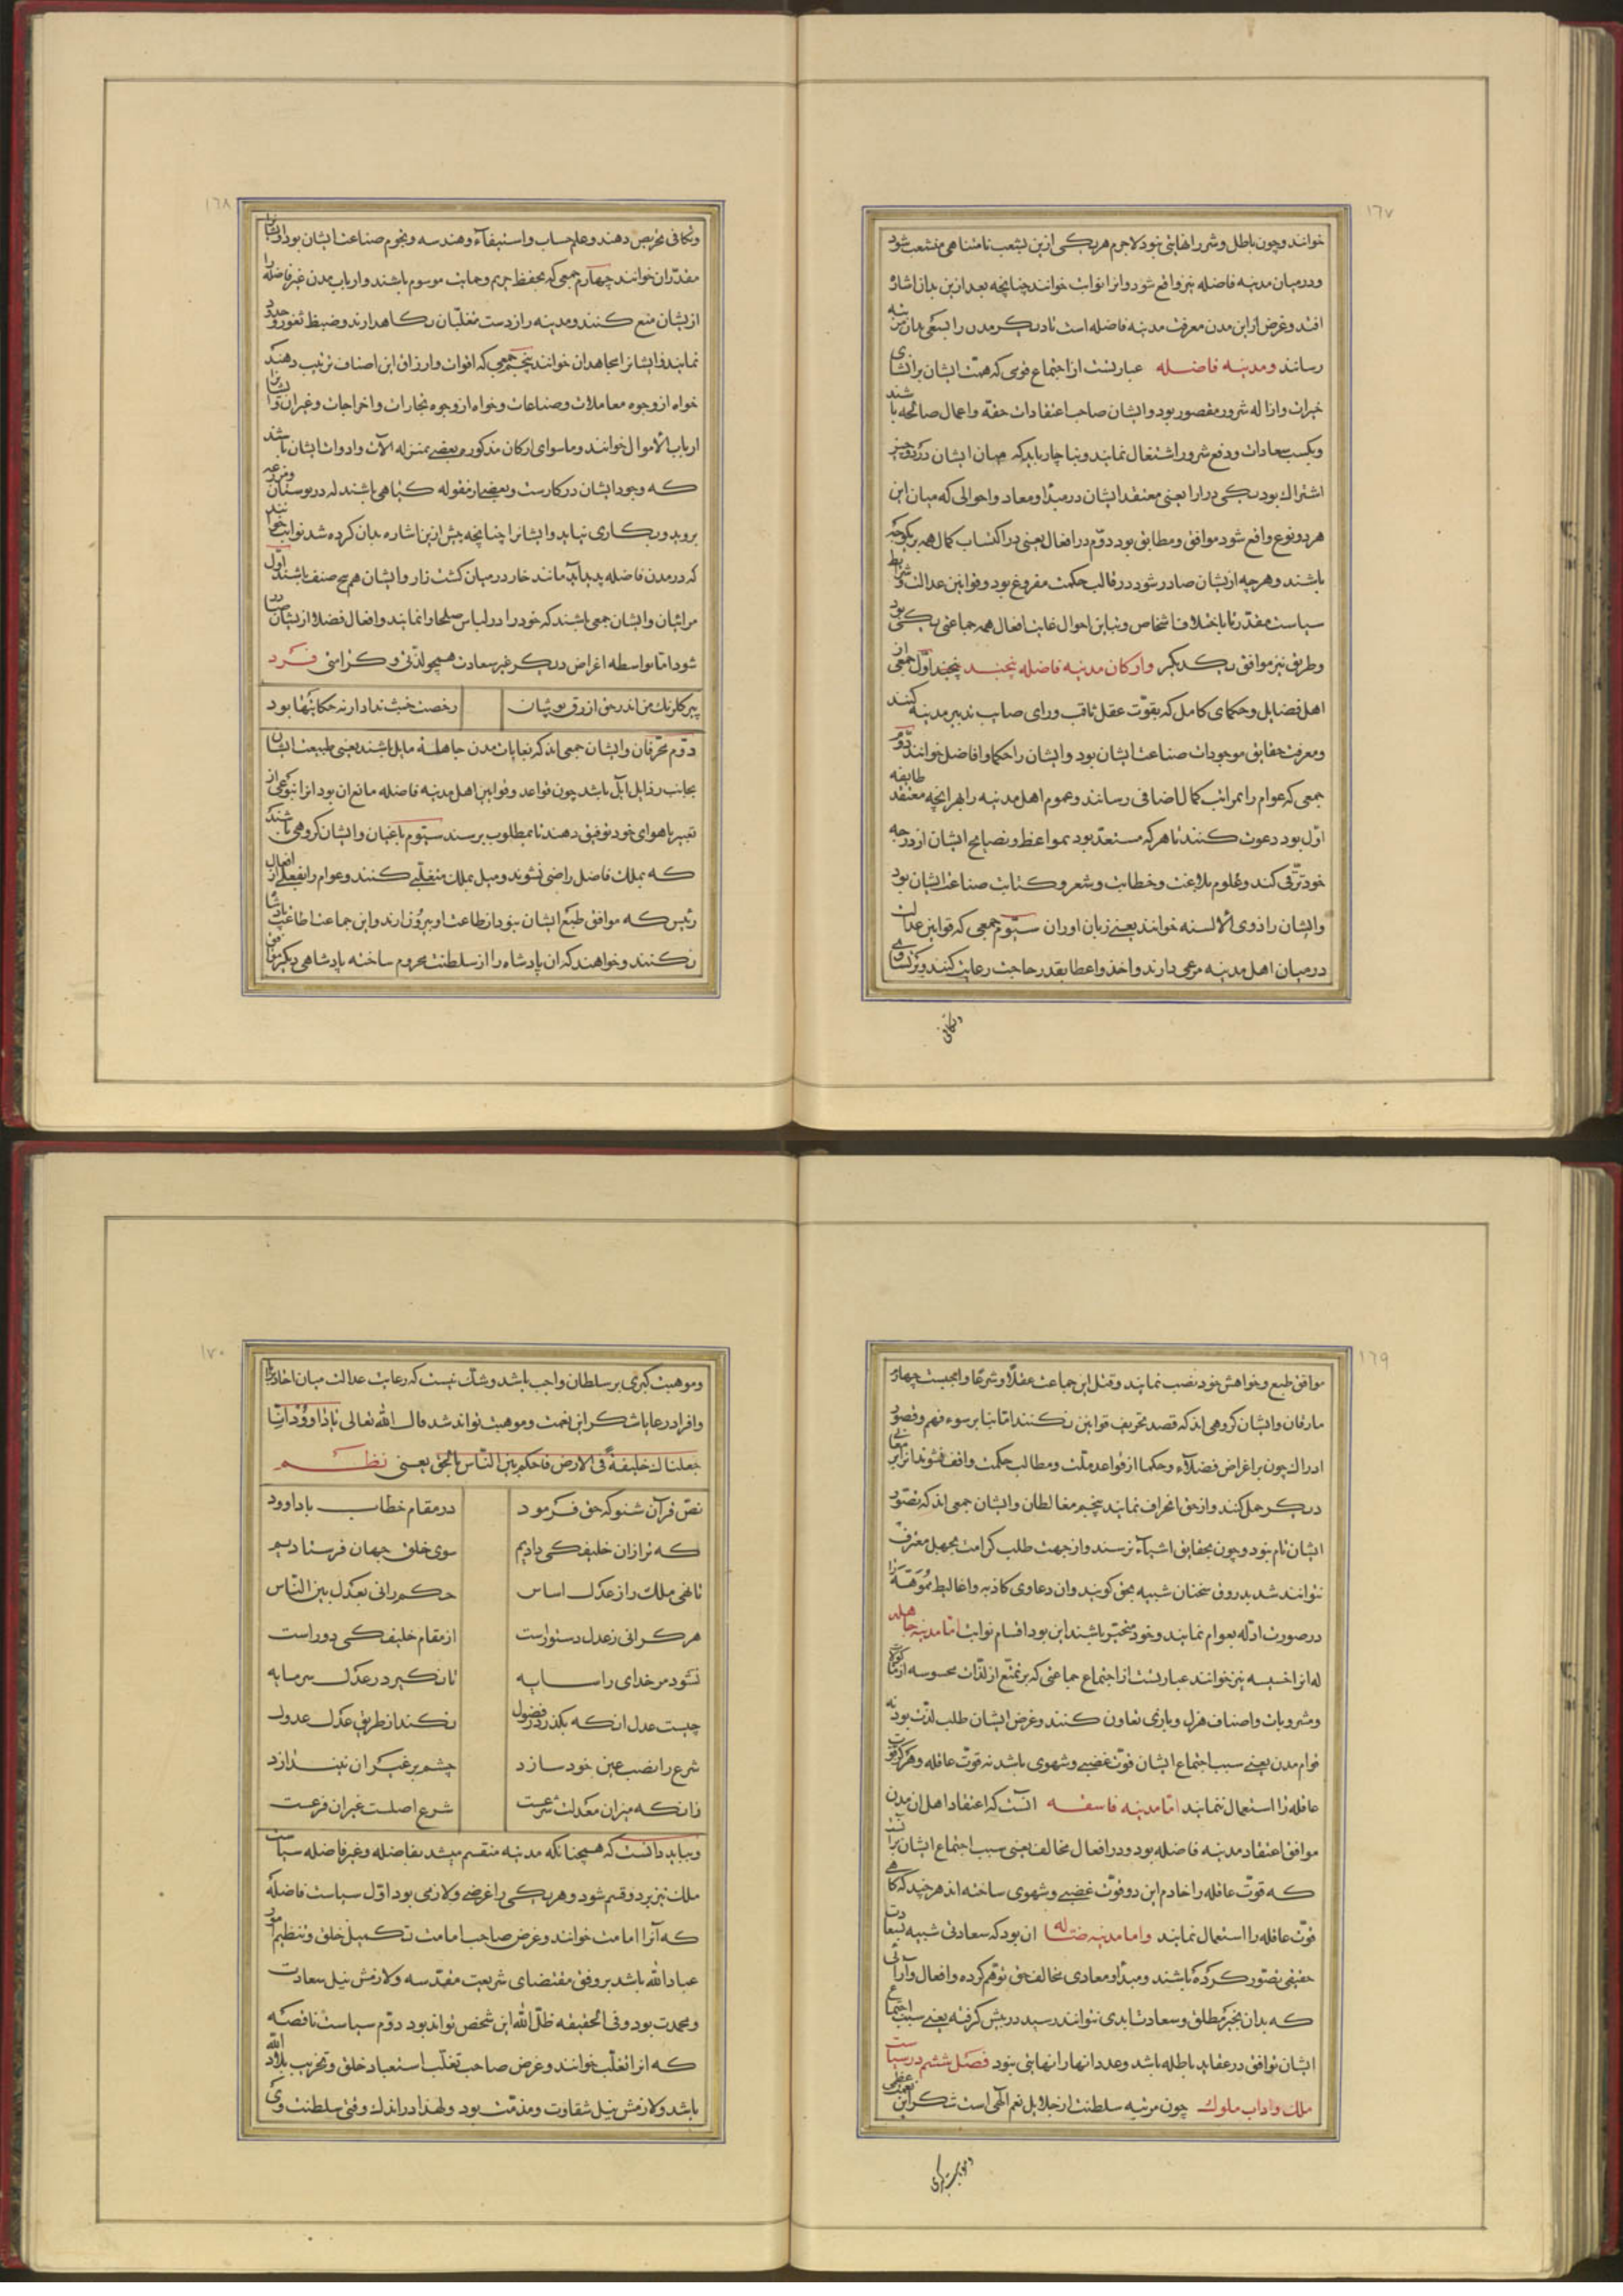 ١٦٧
خوانند و چون باطل و شر را نهایتی نبود لاجرم هر یکی ازین بشعب نامتناهی منشعب شود
و در میان مدینه فاضله نیز واقع شود و انرا نوابت خوانند چنانچه بعد ازین بدان اشاره
افتد و غرض از این مدن معرفت مدینه فاضله است تا دیگر مدن را بسعی بدان مرتبه
رسانند و مدینه فاضله عبارتست از اجتماع قومی که همت ایشان بر اقتنای
خیرات و ازاله شرور مقصور بود و ایشان صاحب اعتقادات حقه و اعمال صالحه باشند
و بکسب سعادات و دفع شرور اشتغال نمایند و بناچار باید که میان ایشان در دو چیز
اشتراک بود یکی در ارا یعنی معتقد ایشان در مبدا و معاد و احوالی که میان این
هر دو نوع واقع شود موافق و مطابق بود دوم در افعال یعنی در اکتساب کمال همه بر یکوجه
باشند و هر چه ازیشان صادر شود در قالب حکمت مفروغ بود و قوانین عدالت و شرایط
سیاست مقدر تا با اختلاف اشخاص و تباین احوال غایت افعال همه جماعتی یکی بود
و طریق نیز موافق یکدیگر و ارکان مدینه فاضله پنجند پنجند اول جمعی از
اهل فضایل و حکمای کامل که بقوت عقل ثاقب و رای صایب تدبیر مدینه کنند
و معرفت حقایق موجودات صناعت ایشان بود و ایشان را حکما و افاضل خوانند دوم
جمعی که عوام را بمراتب کمال اضافی رسانند و عموم اهل مدینه را بهر انچه معتقد طایفه
اول بود دعوت کنند تا هر که مستعد بود بمواعظ و نصایح ایشان از درجه
خود ترقی کند و علوم بلاغت و خطابت و شعر و کتابت صناعت ایشان بود
و ایشان را ذوی الالسنه خوانند یعنی زبان اوران سیوم جمعی که قوانین عدالت
در میان اهل مدینه مرعی دارند و اخذ و اعطا بقدر حاجت رعایت کنند و بر تساوی
و تکافی
١٦٨
و تکافی تحریص دهند و علم حساب و استیفاء و هندسه و نجوم صناعت ایشان بود و ایشانرا
مقدران خوانند چهارم جمعی که بحفظ حریم و حمایت موسوم باشند و ارباب مدن غیر فاضله را
ازیشان منع کنند و مدینه را از دست متغلبان نگاهدارند و ضبط ثغور و حدود
نمایند و ایشانرا مجاهدان خوانند پنجم جمعی که اقوات و ارزاق این اصناف ترتیب دهند
خواه از وجوه معاملات و صناعات و خواه از وجوه تجارات و اخراجات و غیر ان و ایشانرا
ارباب الاموال خوانند و ماسوای ارکان مذکوره بعضی بمنزله الات و ادوات ایشان باشند
که وجود ایشان در کارست و بعضی از مقوله گیاهی باشند که در بوستان و مزرعه
بروید و بکاری نیاید و ایشانرا چنانچه پیش ازین اشاره بدان کرده شد نوابت خوانند
که در مدن فاضله پدید آید مانند خار در میان کشت زار و ایشان هم پنج صنف باشند اول
مرائیان و ایشان جمعی باشند که خود را در لباس صلحا وا نمایند و افعال فضلا ازیشان صادر
شود اما بواسطه اغراض دیگر غیر سعادت همچو لذتی و کرامتی فرد
پیر کلرنک من اندر حق ازرق پوشان
رخصت خبث نداد ار نه حکایتها بود
دوم محرفان و ایشان جمعی اند که بغایات مدن جاهله مایل باشند یعنی طبیعت ایشان
بجانب رذایل ایل باشد چون قواعد و قوانین اهل مدینه فاضله مانع ان بود انرا بنوعی از
تعبیر باهوای خود توفیق دهند تا بمطلوب برسند سیوم باغیان و ایشان گروهی باشند
که بملک فاضل راضی نشوند و میل بملک متغلبی کنند و عوام را بفعلی از افعال
رئیس که موافق طبع ایشان نبود از طاعت او بیرون ارند و این جماعت اطاعت پادشاه
نکنند و خواهند که ان پادشاه را از سلطنت محروم ساخته پادشاهی دیگر موافق
١٦٩
موافق طبع و خواهش خود نصب نمایند و قتل این جماعت عقلا و شرعا واجبست چهارم
مارقان و ایشان گروهی اند که قصد تحریف قوانین نکنند اما بنا بر سوء فهم و قصور
ادراک چون بر اغراض فضلاء و حکما از قواعد ملت و مطالب حکمت واقف نشوند انرا بر معانی
دیگر حمل کنند و از حق انحراف نمایند پنجم مغالطان و ایشان جمعی اند که تصور
ایشان تام نبود و چون بحقایق اشیاء نرسند و از جهت طلب کرامت بجهل معترف
نتوانند شد بدروغ سخنان شبیه بحق گویند و ان دعاوی کاذبه و اغالیط مموهه را
در صورت ادله بعوام نمایند و خود متحیر باشند این بود اقسام نوابت اما مدینه جاهله
که انرا خسیسه نیز خوانند عبارتست از اجتماع جماعتی که بر تمتع از لذات محسوسه از ماکولات
و مشروبات و اصناف هزل و بازی تعاون کنند و غرض ایشان طلب لذت بود نه
قوام مدن یعنی سبب اجتماع ایشان قوت غضبی و شهوی باشد نه قوت عاقله و هرگز قوت
عاقله را استعمال ننمایند اما مدینه فاسقه انست که اعتقاد اهل ان مدن
موافق اعتقاد مدینه فاضله بود و در افعال مخالف یعنی سبب اجتماع ایشان برانست
که قوت عاقله را خادم این دو قوت غضبی و شهوی ساخته اند هر چند که گاهی
قوت عاقله را استعمال نمایند و اما مدینه ضاله ان بود که سعادتی شبیه بسعادت
حقیقی تصور کرده باشند و مبدا و معادی مخالف حق توهم کرده و افعال و آرائی
که بدان بخیر مطلق و سعادت ابدی نتوانند رسید در پیش گرفته یعنی سبب اجتماع
ایشان توافق در عقاید باطله باشد و عدد انها را نهایتی نبود فصل ششم در سیاست
ملک و اداب ملوک چون مرتبه سلطنت از جلایل نعم الهی است شکر این نعمت عظمی
و موهبت کبری
١٧٠
و موهبت کبری بر سلطان واجب باشد و شک نیست که رعایت عدالت میان احاد برایا
و افراد رعایا شکر این نعمت و موهبت تواند شد قال الله تعالی یا داوود انا
جعلناک خلیفة فی الارض فاحکم بین الناس بالحق یعنی نظم
نص قرآن شنو که حق فرمود
در مقام خطاب با داوود
که ترا زان خلیفگی دادیم
سوی خلق جهان فرستادیم
تا نهی ملک را ز عدل اساس
حکم رانی بعدل بین الناس
هر کرانی ز عدل دستورست
از مقام خلیفگی دورست
نشود مر خدای را سایه
تا نگیرد ز عدل سرمایه
چیست عدل انکه بگذرد ز فضول
نکند از طریق عدل عدول
شرع را نصب عین خود سازد
چشم بر غیر ان نیندازد
زانکه میزان معدلت شرعست
شرع اصلست غیر ان فرعست
و بباید دانست که همچنانکه مدینه منقسم میشد بفاضله و غیر فاضله سیاست
ملک نیز بر دو قسم شود و هر یکی را غرضی و لازمی بود اول سیاست فاضله
که آنرا امامت خوانند و غرض صاحب امامت تکمیل خلق و تنظیم امور
عباد الله باشد بر وفق مقتضای شریعت مقدسه و لازمش نیل سعادت
و محمدت بود و فی الحقیقه ظل الله این شخص تواند بود دوم سیاست ناقصه
که انرا تغلب خوانند و غرض صاحب تغلب استعباد خلق و تخریب بلاد الله
باشد و لازمش نیل شقاوت و مذمت بود و لهذا در اندک وقتی سلطنت وی